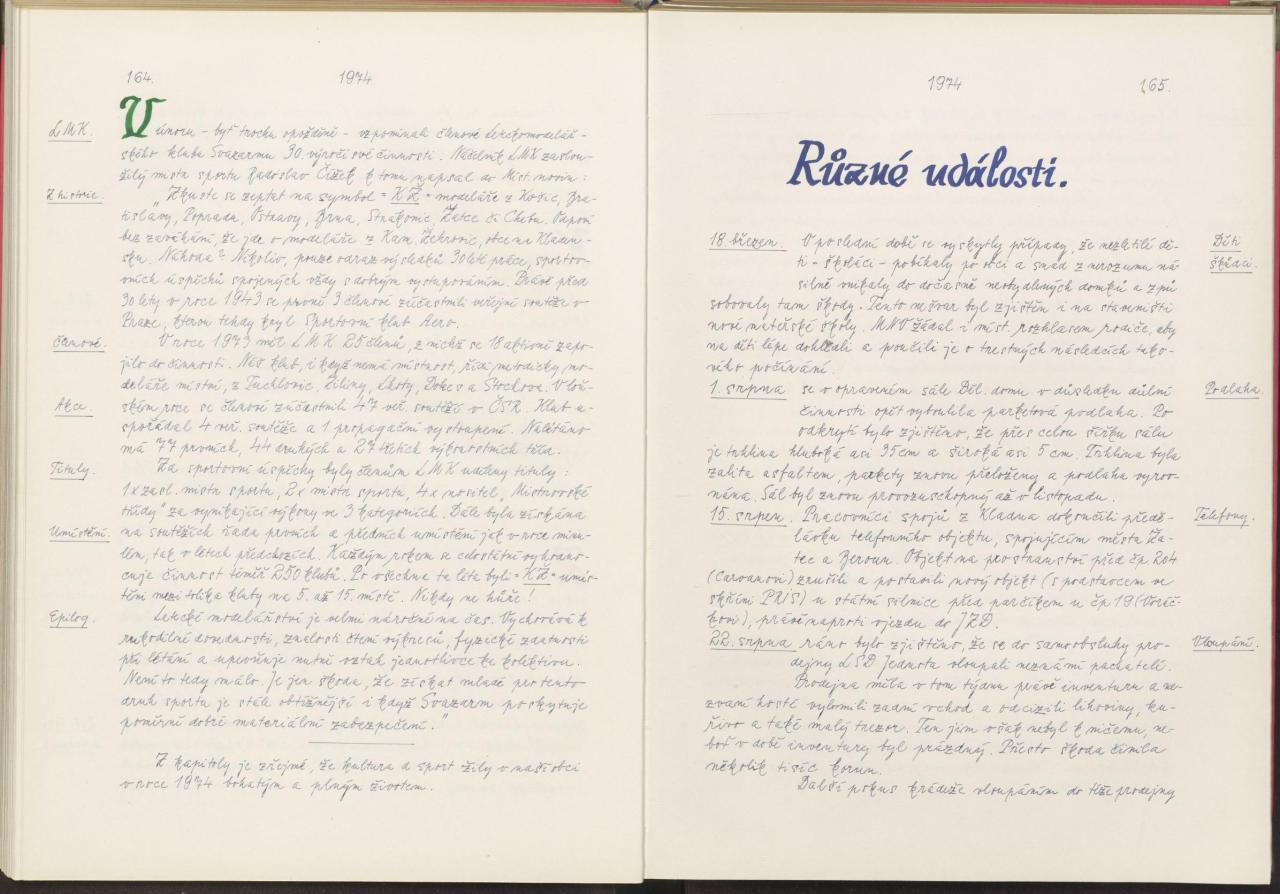 164.
1974
LMK.
V únoru - byť trochu opožděně - vzpomínali členové Leteckomodelář-
ského klubu Svazarmu 30. výročí své činnosti. Náčelník LMK zaslou-
žilý mistr sportu Radoslav Čížek k tomu napsal do Míst. novin:
Z historie.
"Zkuste se zeptat na symbol = KŽ = modeláře z Košic, Bra-
tislavy, Popradu, Ostravy, Brna, Strakonic, Žatce či Chebu. Odpoví
bez zaváhání, že jde o modeláře z Kam. Žehrovic, obce na Kladen-
sku. Náhoda? Nikoliv, pouze odraz výsledků 30leté práce, sportov-
ních úspěchů spojených vždy s dobrým vystupováním. Právě před
30 lety v roce 1943 se první 3 členové zúčastnili veřejné soutěže v
Praze, kterou tehdy kryl Sportovní klub Aero.
Členové.
V roce 1973 měl LMK 25 členů, z nichž se 18 aktivně zapo-
jilo do činnosti. Náš klub, i když nemá místnost, řídí metodicky mo-
deláře místní, z Tuchlovic, Žiliny, Lhoty, Dokes a Stochova. V loň-
Akce.
ském roce se členové zúčastnili 47 veř. soutěží v ČSR. Klub u-
spořádal 4 veř. soutěže a 1 propagační vystoupení. Nalétáno
má 77 prvních, 44 druhých a 27 třetích výkonnostních tříd.
Tituly.
Za sportovní úspěchy byly členům LMK uděleny tituly:
1x zasl. mistr sportu, 2x mistr sportu, 4x nositel "Mistrovské
třídy" za vynikající výkony ve 3 kategoriích. Dále byla získána
Umístění.
na soutěžích řada prvních a předních umístění jak v roce minu-
lém, tak v letech předchozích. Každým rokem se celostátně vyhodno-
cuje činnost téměř 250 klubů. Po všechna ta léta byli = KŽ = umís-
těni mezi tolika kluby na 5. až 15. místě. Nikdy ne hůře!
Epilog.
Letecké modelářství je velmi náročné na čas. Vychovává k
rukodílné dovednosti, znalosti čtení výkresů, fyzické zdatnosti
při létání a upevňuje nutný vztah jednotlivce ke kolektivu.
Není to tedy málo. Je jen škoda, že získat mladé pro tento
druh sportu je stále obtížnější i když Svazarm poskytuje
poměrně dobré materiální zabezpečení."
Z kapitoly je zřejmé, že kultura a sport žily v naší obci
v roce 1974 bohatým a plným životem.
1974
165.
Různé události.
18. březen.
V poslední době se vyskytly případy, že nezletilé dě-
Děti
ti - školáci - pobíhaly po obci a snad z nerozumu ná-
škůdci.
silně vnikaly do dočasně neobydlených domků a způ
sobovaly tam škody. Tento nešvar byl zjištěn i na staveništi
nové mateřské školy. MNV žádal i míst. rozhlasem rodiče, aby
na děti lépe dohlédli a poučili je o trestných následcích tako-
vého počínání.
1. srpna
se v opraveném sále Děl. domu v důsledku důlní
Podlaha.
činnosti opět vyboulila parketová podlaha. Po
odkrytí bylo zjištěno, že přes celou šířku sálu
je trhlina hluboká asi 35 cm a široká asi 5 cm. Trhlina byla
zalita asfaltem, parkety znovu přeloženy a podlaha vyrov-
nána. Sál byl znovu provozuschopný až v listopadu.
15. srpen.
Pracovníci spojů z Kladna dokončili předě-
Telefony.
lávku telefonního objektu, spojujícím města Ža-
tec a Beroun. Objekt na prostranství před čp. 204
(Carvanovi) zrušili a postavili nový objekt (s podstavcem ve
skříni PRIS) u státní silnice před parčíkem u čp 19 (Voráč-
kovi), právě naproti vjezdu do JZD.
22. srpna
ráno bylo zjištěno, že se do samoobsluhy pro-
Vloupání.
dejny LSD Jednota vloupali neznámí pachatelé.
Prodejna měla v tom týdnu právě inventuru a ne-
zvaní hosté vylomili zadní vchod a odcizili lihoviny, ku-
řivo a také malý trezor. Ten jim však nebyl k ničemu, ne-
boť v době inventury byl prázdný. Přesto škoda činila
několik tisíc korun.
Další pokus krádeže vloupáním do téže prodejny